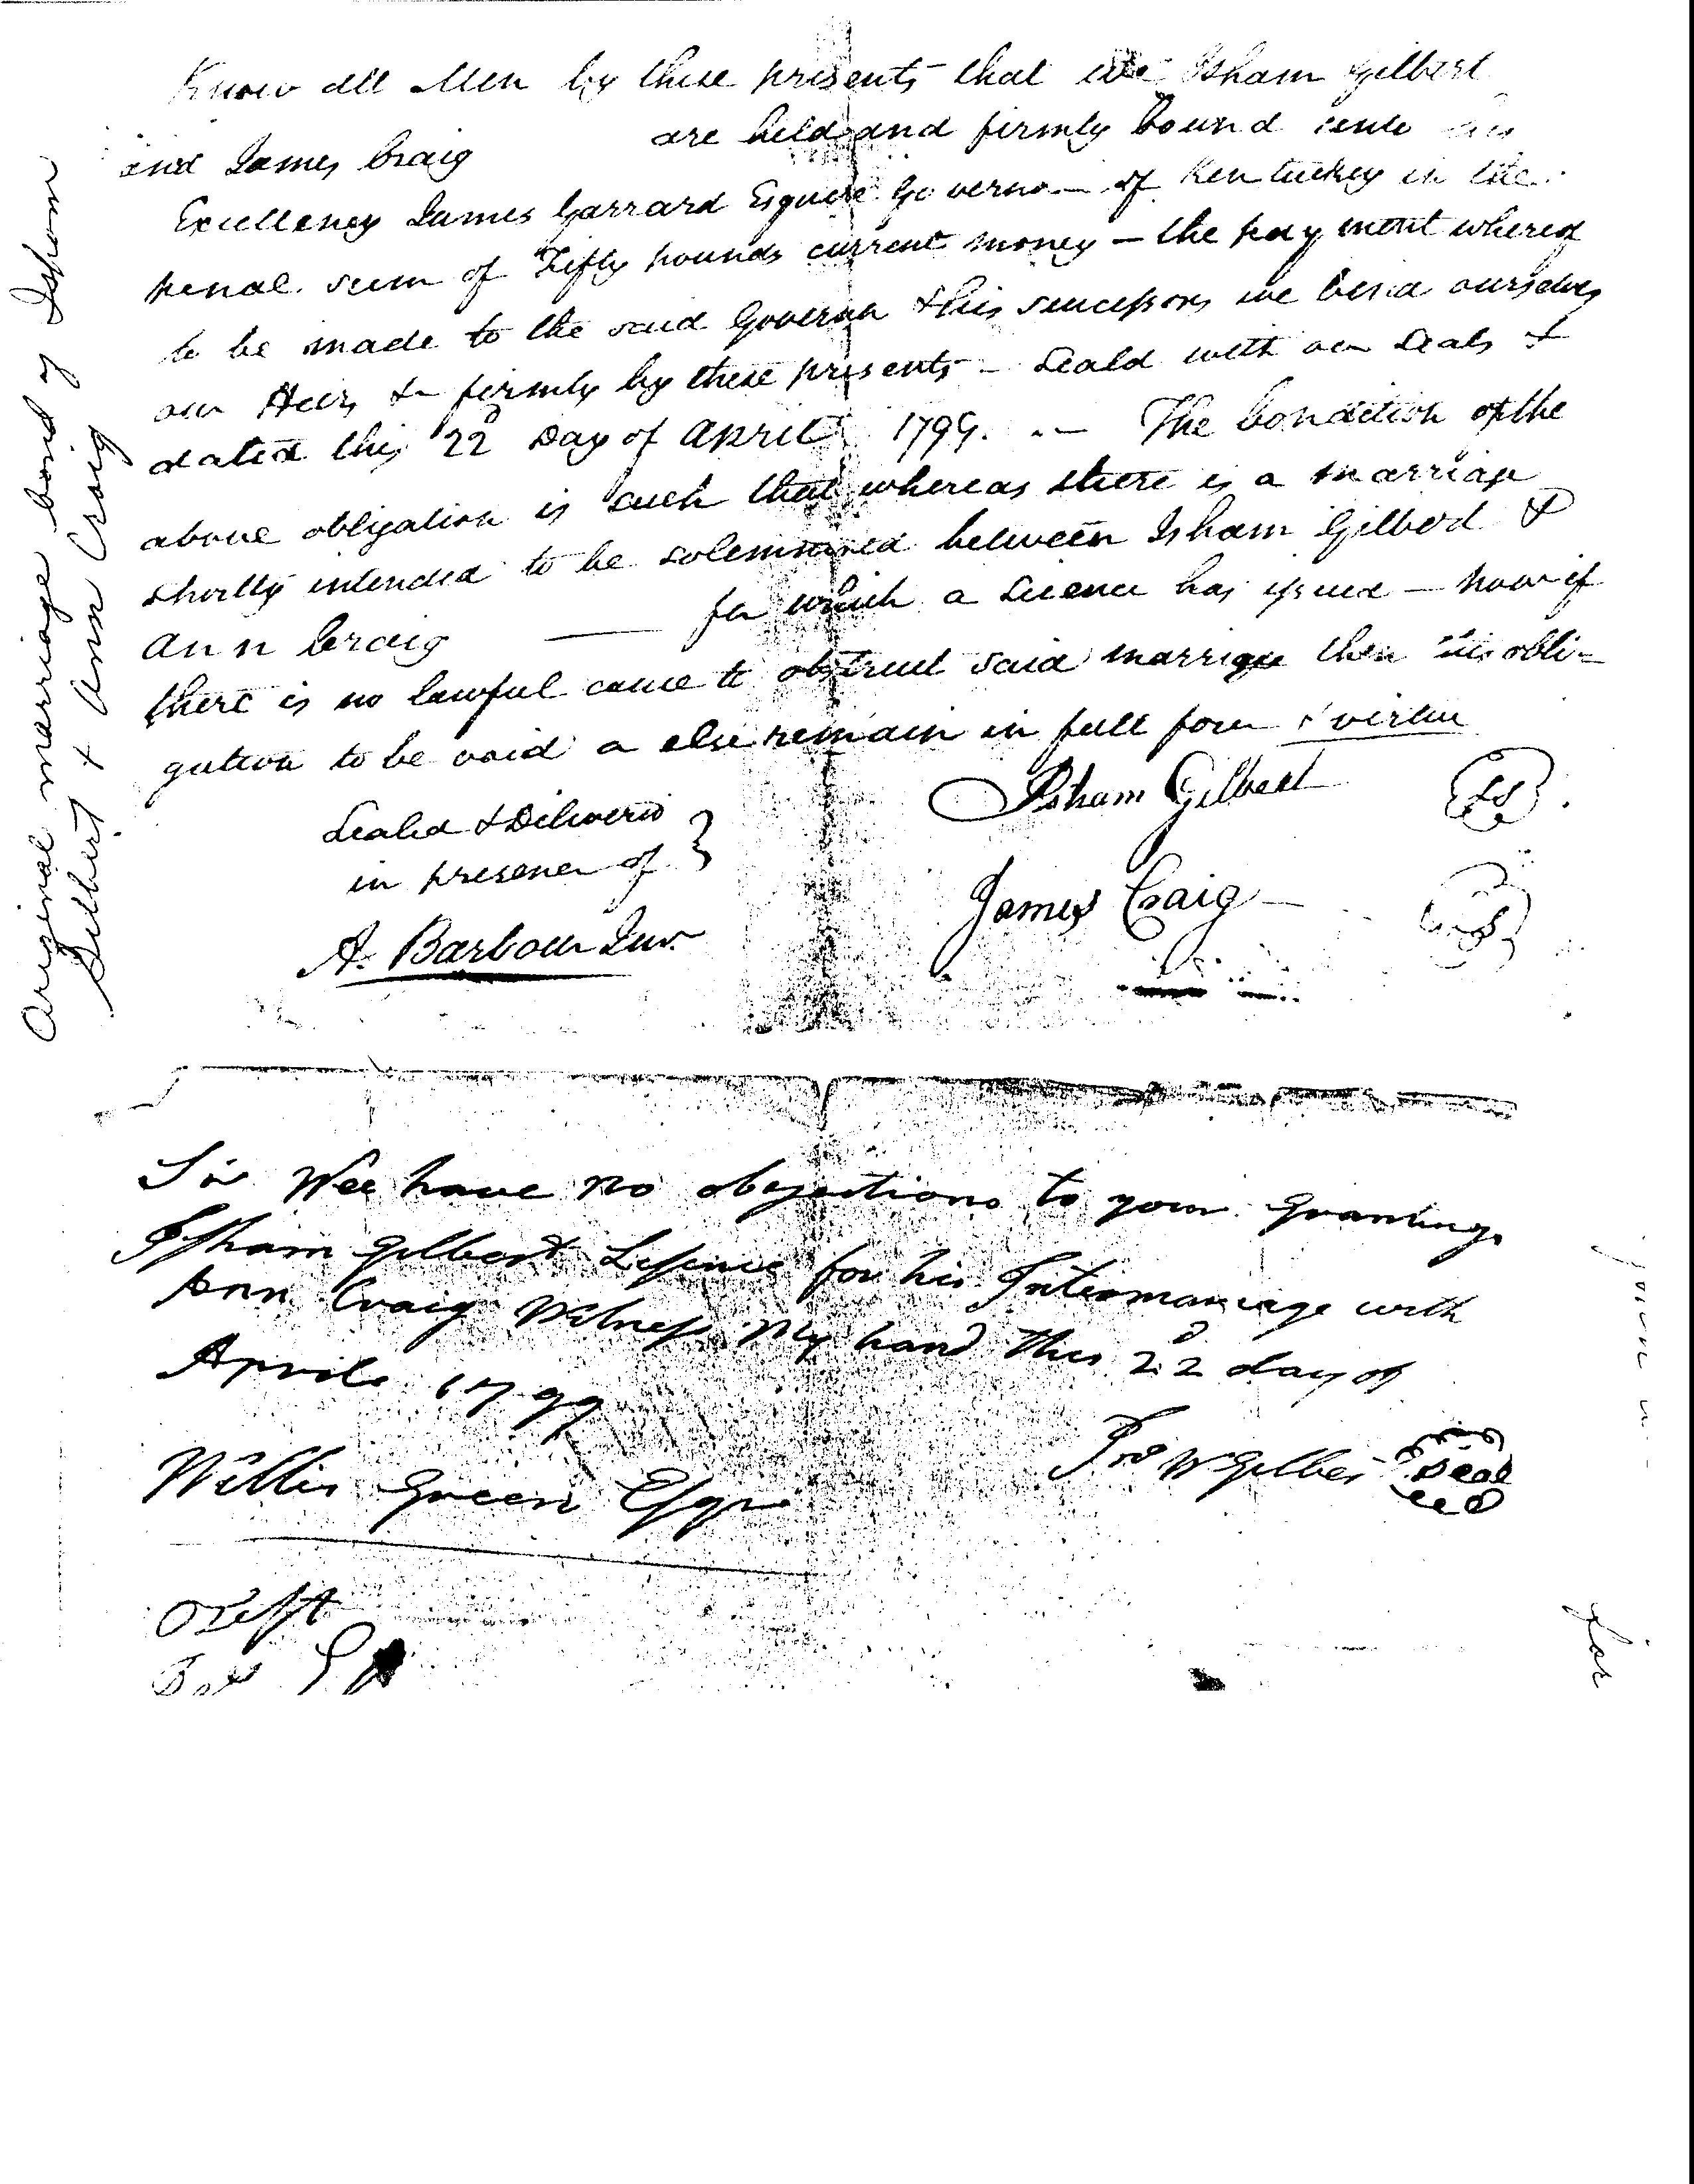 Original marriage bond of Isham
Gilbert & Ann Craig
Know all Men by these presents that we Isham Gilbert
and James Craig are held and firmly bound unto his
Excellency James Garrard Esquire Governor of Kentucky in the
penal sum of Fifty pounds current money — the payment whereof
to be made to the said Governor & his successors we bind ourselves
our Heirs &c firmly by these presents — Seald with our Seals &
dated this 22d Day of April 1799. — The Condition of the
above obligation is such that whereas there is a marriage
shortly intended to be solemnized between Isham Gilbert &
Ann Craig — for which a Licence has issued — now if
there is no lawful cause to obstruct said marriage then this obli=
gation to be void or else remain in full force & virtue
Sealed & Deliverd
in presence of
A. Barbour Junr.
Isham Gilbert LS
James Craig LS
Sir Wee have no objections to your granting
Isham Gilbert Lisince for his Intermarriage with
Ann Craig Witness My hand this 22d day of
April 1799
Jno W Gilber Seal
Willis Green Esqr
Test
for